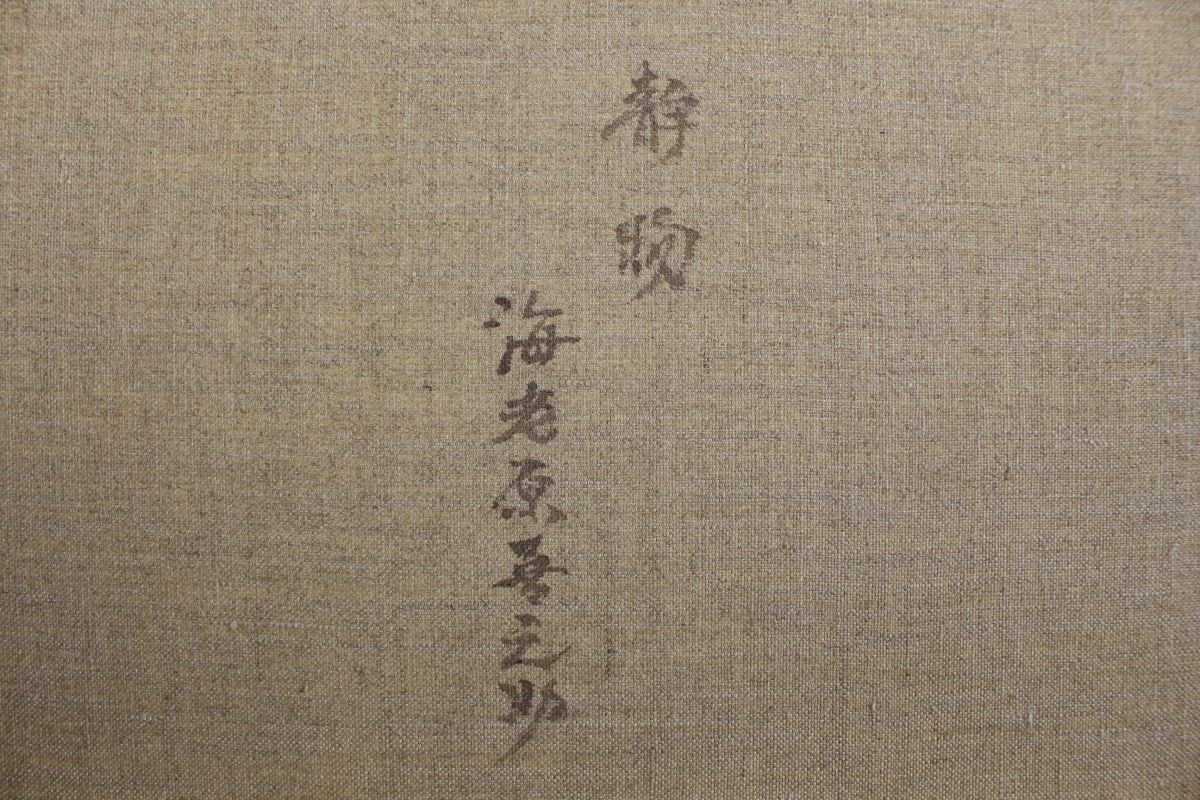 静物
海老原喜之助